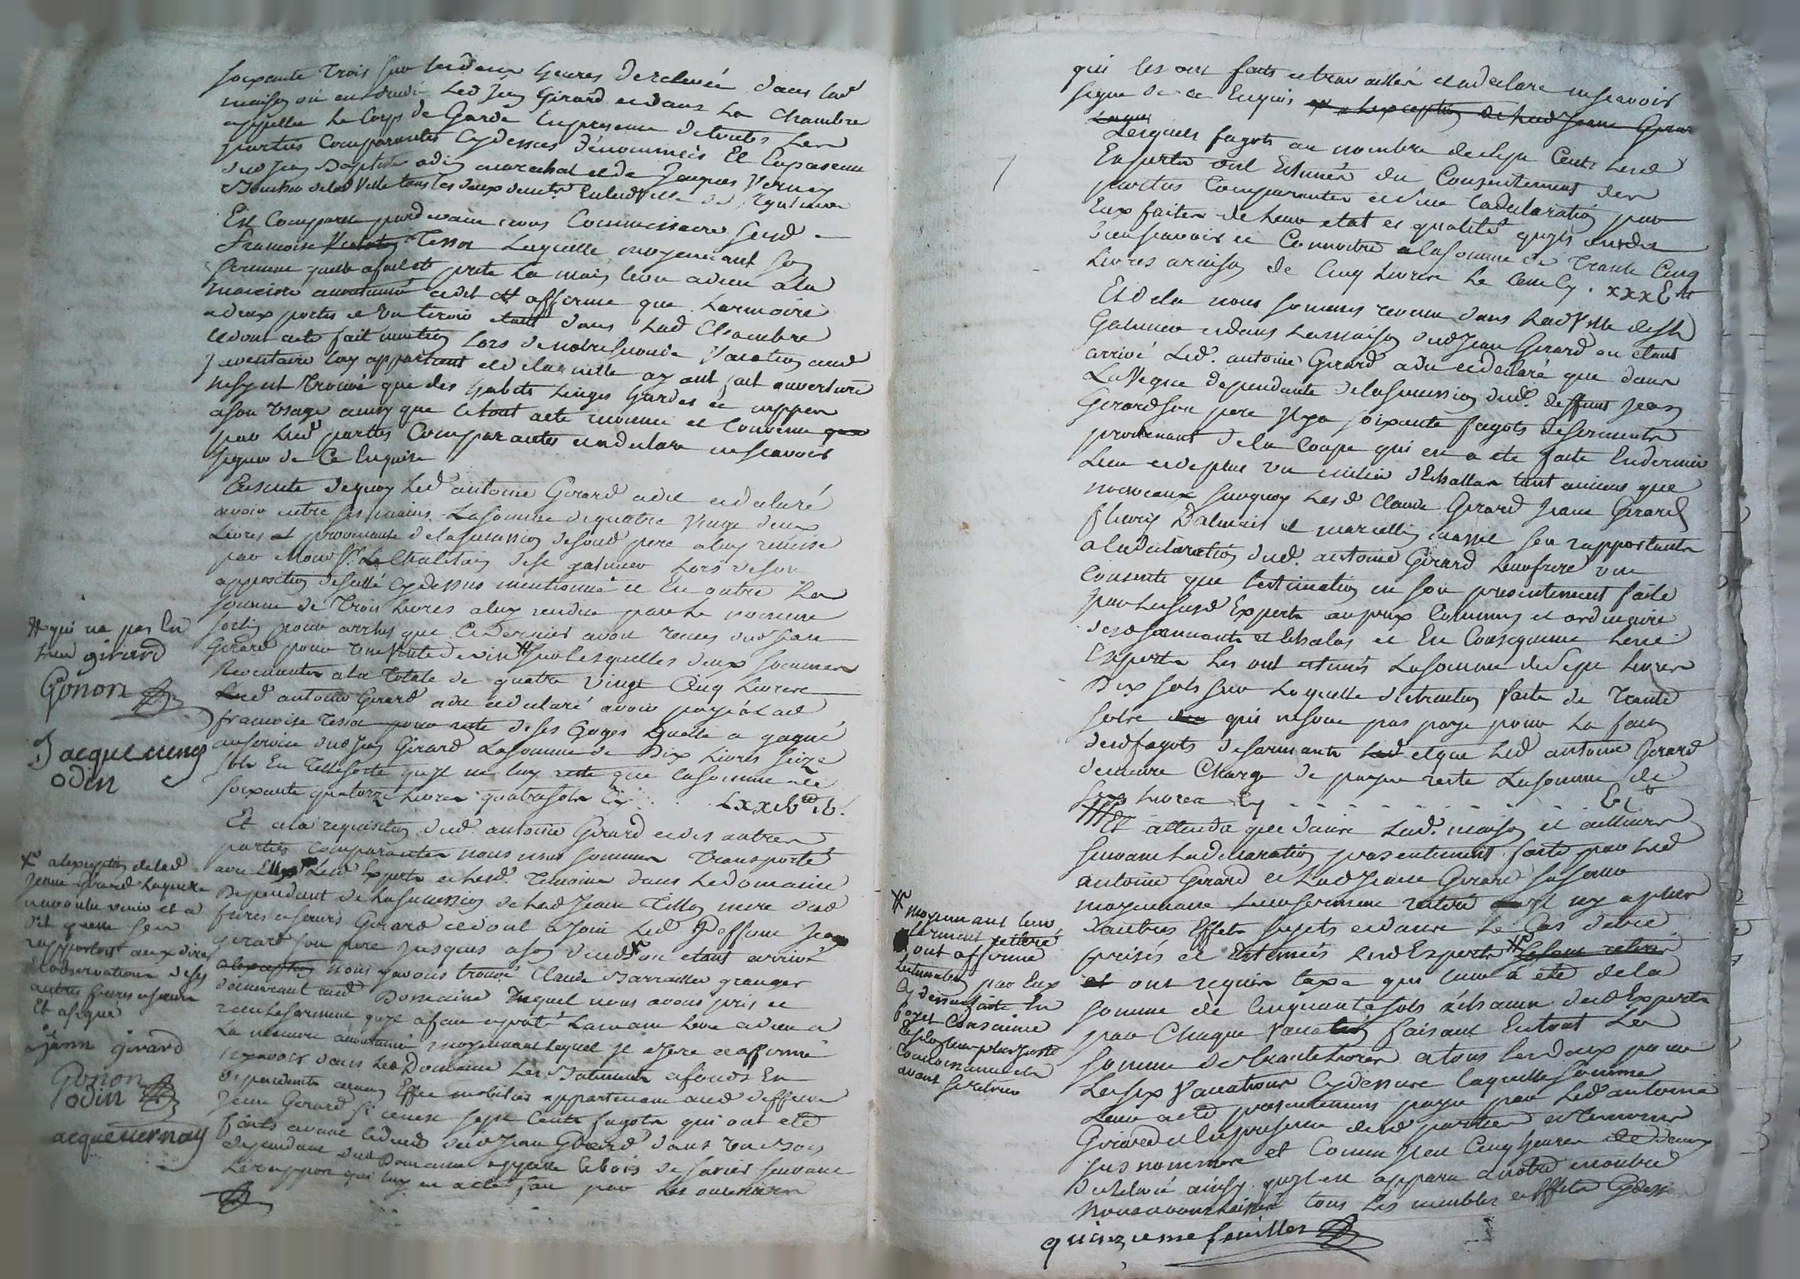 soixante trois sur les deux heures de relevée dans lad
maison où est décédé led Jean Girard et dans la chambre
appellée le Corps de Garde en presence de toutes les
parties comparantes cydessus dénommées Et en presence
dud Jean Baptiste odin marechal et de Jacques Vernay
de lad ville tous les deux demts. en lad ville de St galmier
Est comparue pardevant nous Commissaire susd
francoise Tessot Laquelle moyennant son
serment quelle a fait et preté la main levée a dieu a la
maniere accoutumée a dit et affirmé que Larmoire
a deux portes et un tiroir étant dans lad Chambre
et dont a été fait mention lors de notre seconde vacation aud
inventaire luy appartient et d'icelle ayant fait ouverture
ne s'y est trouvé que des habits linges hardes et nippes
a son usage ainsy que le tout a été reconnu et convenu
par lesd parties comparantes et a déclaré ne scavoir
signer de ce Enquise
Ensuite de quoy led antoine Girard a dit et déclaré
avoir entre ses mains La somme de quatre vingt deux
Livres provenante de la succession de sond pere a luy remise
par Monsr. Le Chatelain de St galmier Lors de son
apposition de scellé cydessus mentionné et En outre La
somme de trois Livres a luy rendue par le nommé
que ce dernier avoit recues dud Jean
Girard pour une vente de vin # sur lesquelles deux sommes
Revenantes a la totale de quatre vingt Cinq Livres
Led antoine Girard a dit et declaré avoir payé a lad
francoise Tessot pour reste de ses Gages quelle a gagné
au service dud Jean Girard La somme de Dix Livres seize
sols En telle sorte qu'il ne luy reste que la somme de
soixante quatorze Livres quatre sols Cy . . . Lxxiiijtt iiijs.
Et a la requisition dud antoine Girard et des autres
parties comparantes nous nous sommes transporté
avec lesd Experts et lesd temoins dans Le domaine
Dependant de la succession de lad Jeanne Tillon mere desd
freres et soeurs Girard et dont a joui led Deffunt Jean
girard son pere jusques a son deced # où etant arrivé
nous y avons trouvé Claude grangier
demeurant aud Domaine Duquel nous avons pris et
recu le serment qu'il a fait et preté la main levée a dieu a
La maniere accoutumée moyennant lequel il a juré et affirmé
n'y avoir dans led Domaine Les Batiments et fonds En
dependants aucuns Effets mobiliers appartenant aud deffunt
Jean Girard si ce n'est sept Cents fagots qui ont eté
faits avant le deces dud Jean Girard dans un Bois
dependant dud Domaine appellé le bois de suivant
Le rapport qui luy en a eté fait par les ouvriers
# qui na pas En
girard
Gonon
Jacque verney
odin
# a l'exception de lad
Jeanne Girard laquelle
n'a voulu venir et a
dit quelle s'en
rapportoit aux dires
et observations de ses
autres freres et soeurs
Et a signé
jann girard
Gonon
odin
jacque vernay
qui les ont faits et travaillés et a declaré ne scavoir
signer de ce Enquis a l'exception de lad Jeanne Girard
Lesquels fagots au nombre de sept Cents lesd
Experts ont Estimés du Consentement des
parties Comparantes et sur la declaration par
Eux faites de leur etat et qualité qu'ils ont dit
bien scavoir et Connoitre a la somme de trente Cinq
Livres a raison de Cinq Livres Le Cent Cy . xxxvtt
Et de la nous sommes revenu dans lad ville de St
Galmier et dans La maison dud Jean Girard où etant
arrivé Led. antoine Girard a dit et declaré que dans
La Vigne dependante de la succession dud. deffunt Jean
Girard son pere il y a soixante fagots de serments
provenant de la Coupe qui en a eté faite En dernier
Lieu et de plus un millier d'Echallas tant anciens que
nouveaux surquoy lesd Claude Girard Jeanne Girard
fleury Dalmais et marcellin massé s'en rapportants
a la declaration dud. antoine Girard Leur frere ont
consenti que l'estimation en soit presentement faite
par les susd Experts au prix Commun et ordinaire
desd sarments et Echalas et En Consequence lesd
Experts les ont estimés La somme de sept Livres
Dix sols sur Laquelle distraction faite de trente
sols qui ne sont pas payé pour la facon
desd fagots de sarments et que led antoine Girard
demeure Chargé de payer reste La somme de
six Livres Cy . . . . . . . . . . vjtt
Et attendu que dans Lad. maison et ailleurs
suivant La declaration presentement faite par Led
antoine Girard et Lad Jeanne Girard sa soeur
moyennant Leur serment réitéré il ny a plus
d'autres Effets sujets et dans Le Cas d'etre
prisés et Estimés Lesd Experts #
ont requis taxe qui leur a eté de la
somme de Cinquante sols a chacun desd Experts
par Chaque vacation faisant En tout La
somme de trente Livres a tous les deux pour
Les six vacations cydessus laquelle somme
Leur a eté presentement payée par led antoine
Girard en la presence desd parties et temoins
susnommés et Comme il est Cinq heures
De relevé ainsy qu'il est apparu a notre montre
Nous avons laissé tous les meubles et effets Cydess
# moyennant leur
serment réitéré
ont affirmé
l'estimation par Eux
cy dessus faite En
leur Conscience
Connoissance
quinzieme feuillet